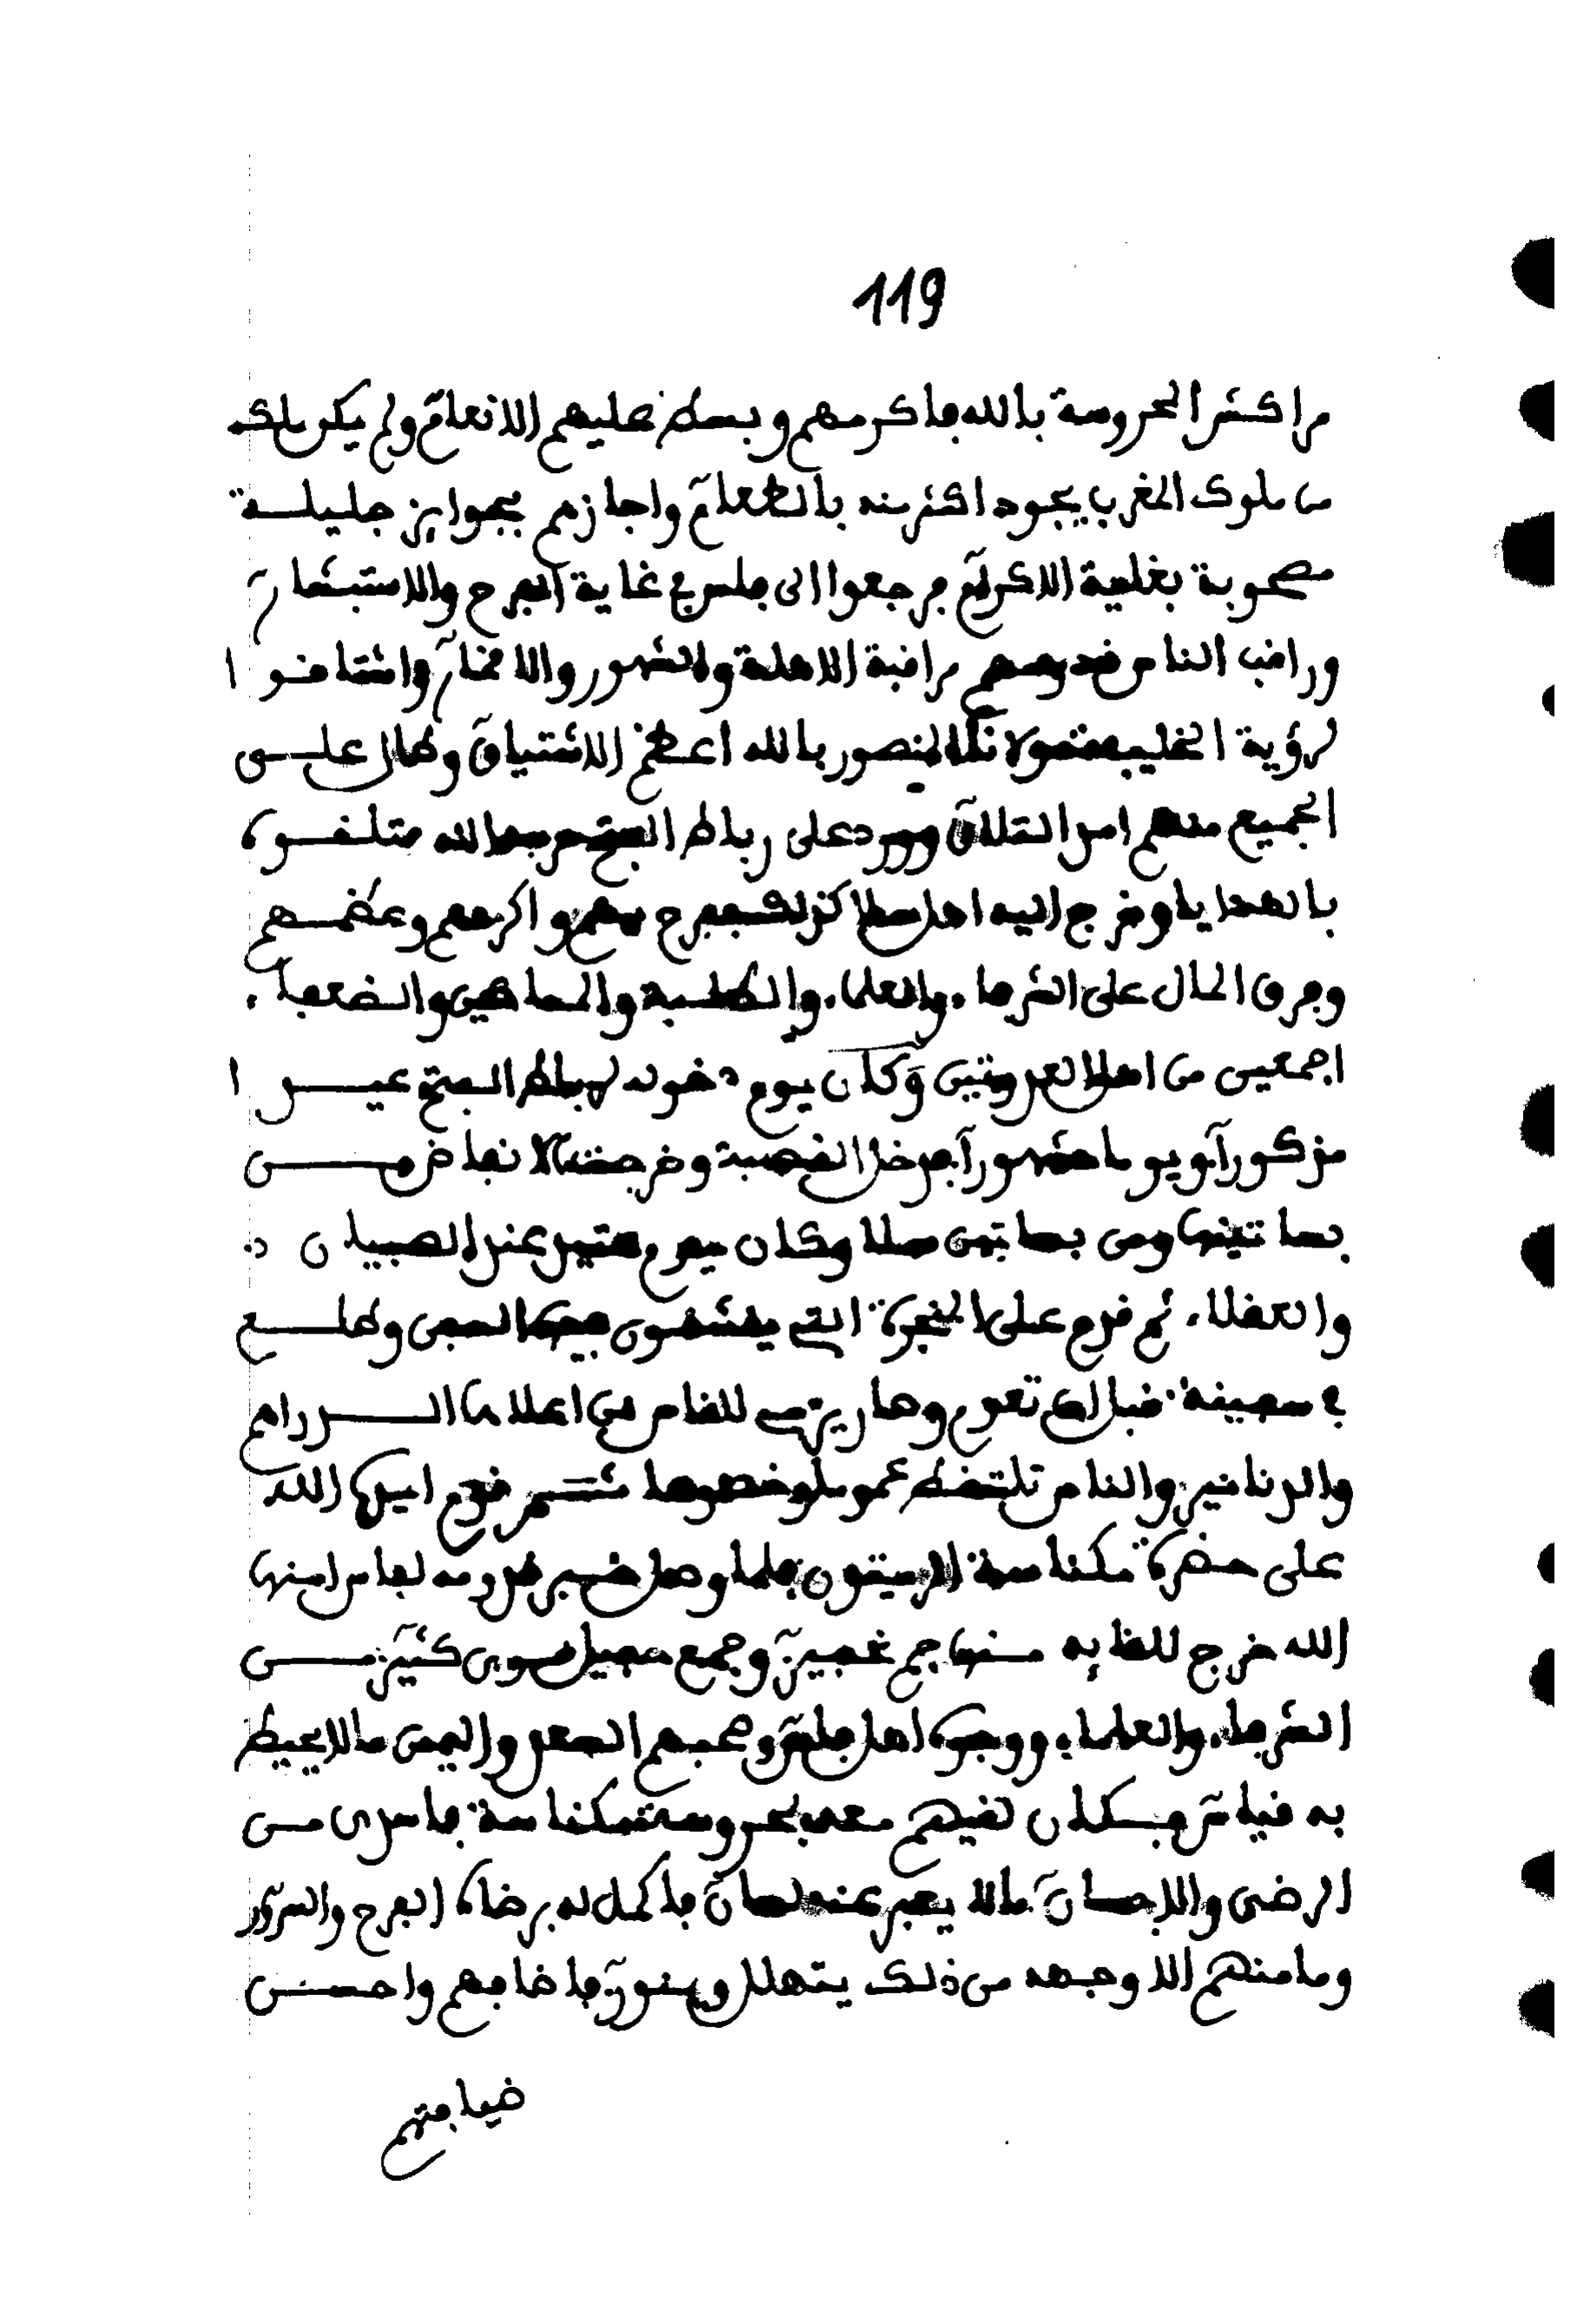 119
مراكش المحروسة بالله فاكرمهم وبسط عليهم الانعام ولم يكن ملك
من ملوك المغرب يجود اكثر منه بالطعام واجازهم بجوايز جليلة
مصحوبة بغاية الاكرام فرجعوا الى فاس في غاية الفرح والاستبشار
وراقب الناس قدومهم مراقبة الاهلة والشهور والاقمار واشتاقوا
لرؤية الخليفة مولانا المنصور بالله اعظم الاشتياق وطال على
الجميع منهم امر التلاق وورد على رباط الفتح حرسها الله فتلقوه
بالهدايا وخرج اليه اهل سلا كذلك ففرح بهم واكرمهم وعظمهم
وفرق المال على الشرفاء والعلماء والطلبة والمساكين والضعفاء
اجمعين من اهل العدوتين وكان يوم دخوله لرباط الفتح عيدا
مذكورا ويوما مشهورا فدخل القصبة وخرجت الانفاض من
بساتينها ومن بساتين سلا وكان يوم عند الصبيان
والعقلاء ثم قدم على الحجرة التي ينشئون فيها السفن وطلع
في سفينة قبل ان تعوم وصار يرمي للناس من اعلاها الدراهم
والدنانير والناس تلتقط عموما وخصوصا ثم قدم ايده الله
على حضرة مكناسة الزيتون فلما وصل خبر قدومه لفاس امنها
الله خرج للقايه منها جم غفير وجمع سوى كثير من
الشرفاء والعلماء ووجوه اهل فاس وصحبهم السعد واليمن مالا يحيط
به قياس فكان لقيهم معه بمحروسة مكناسة فاسدى من
الرضى والاحسان مالا يعبر عنه لسان فاكمل له برضاه الفرح والسرور
وما منهم الا وجهه من ذلك يتهلل وينور فاضافهم واحسن
ضيافتهم